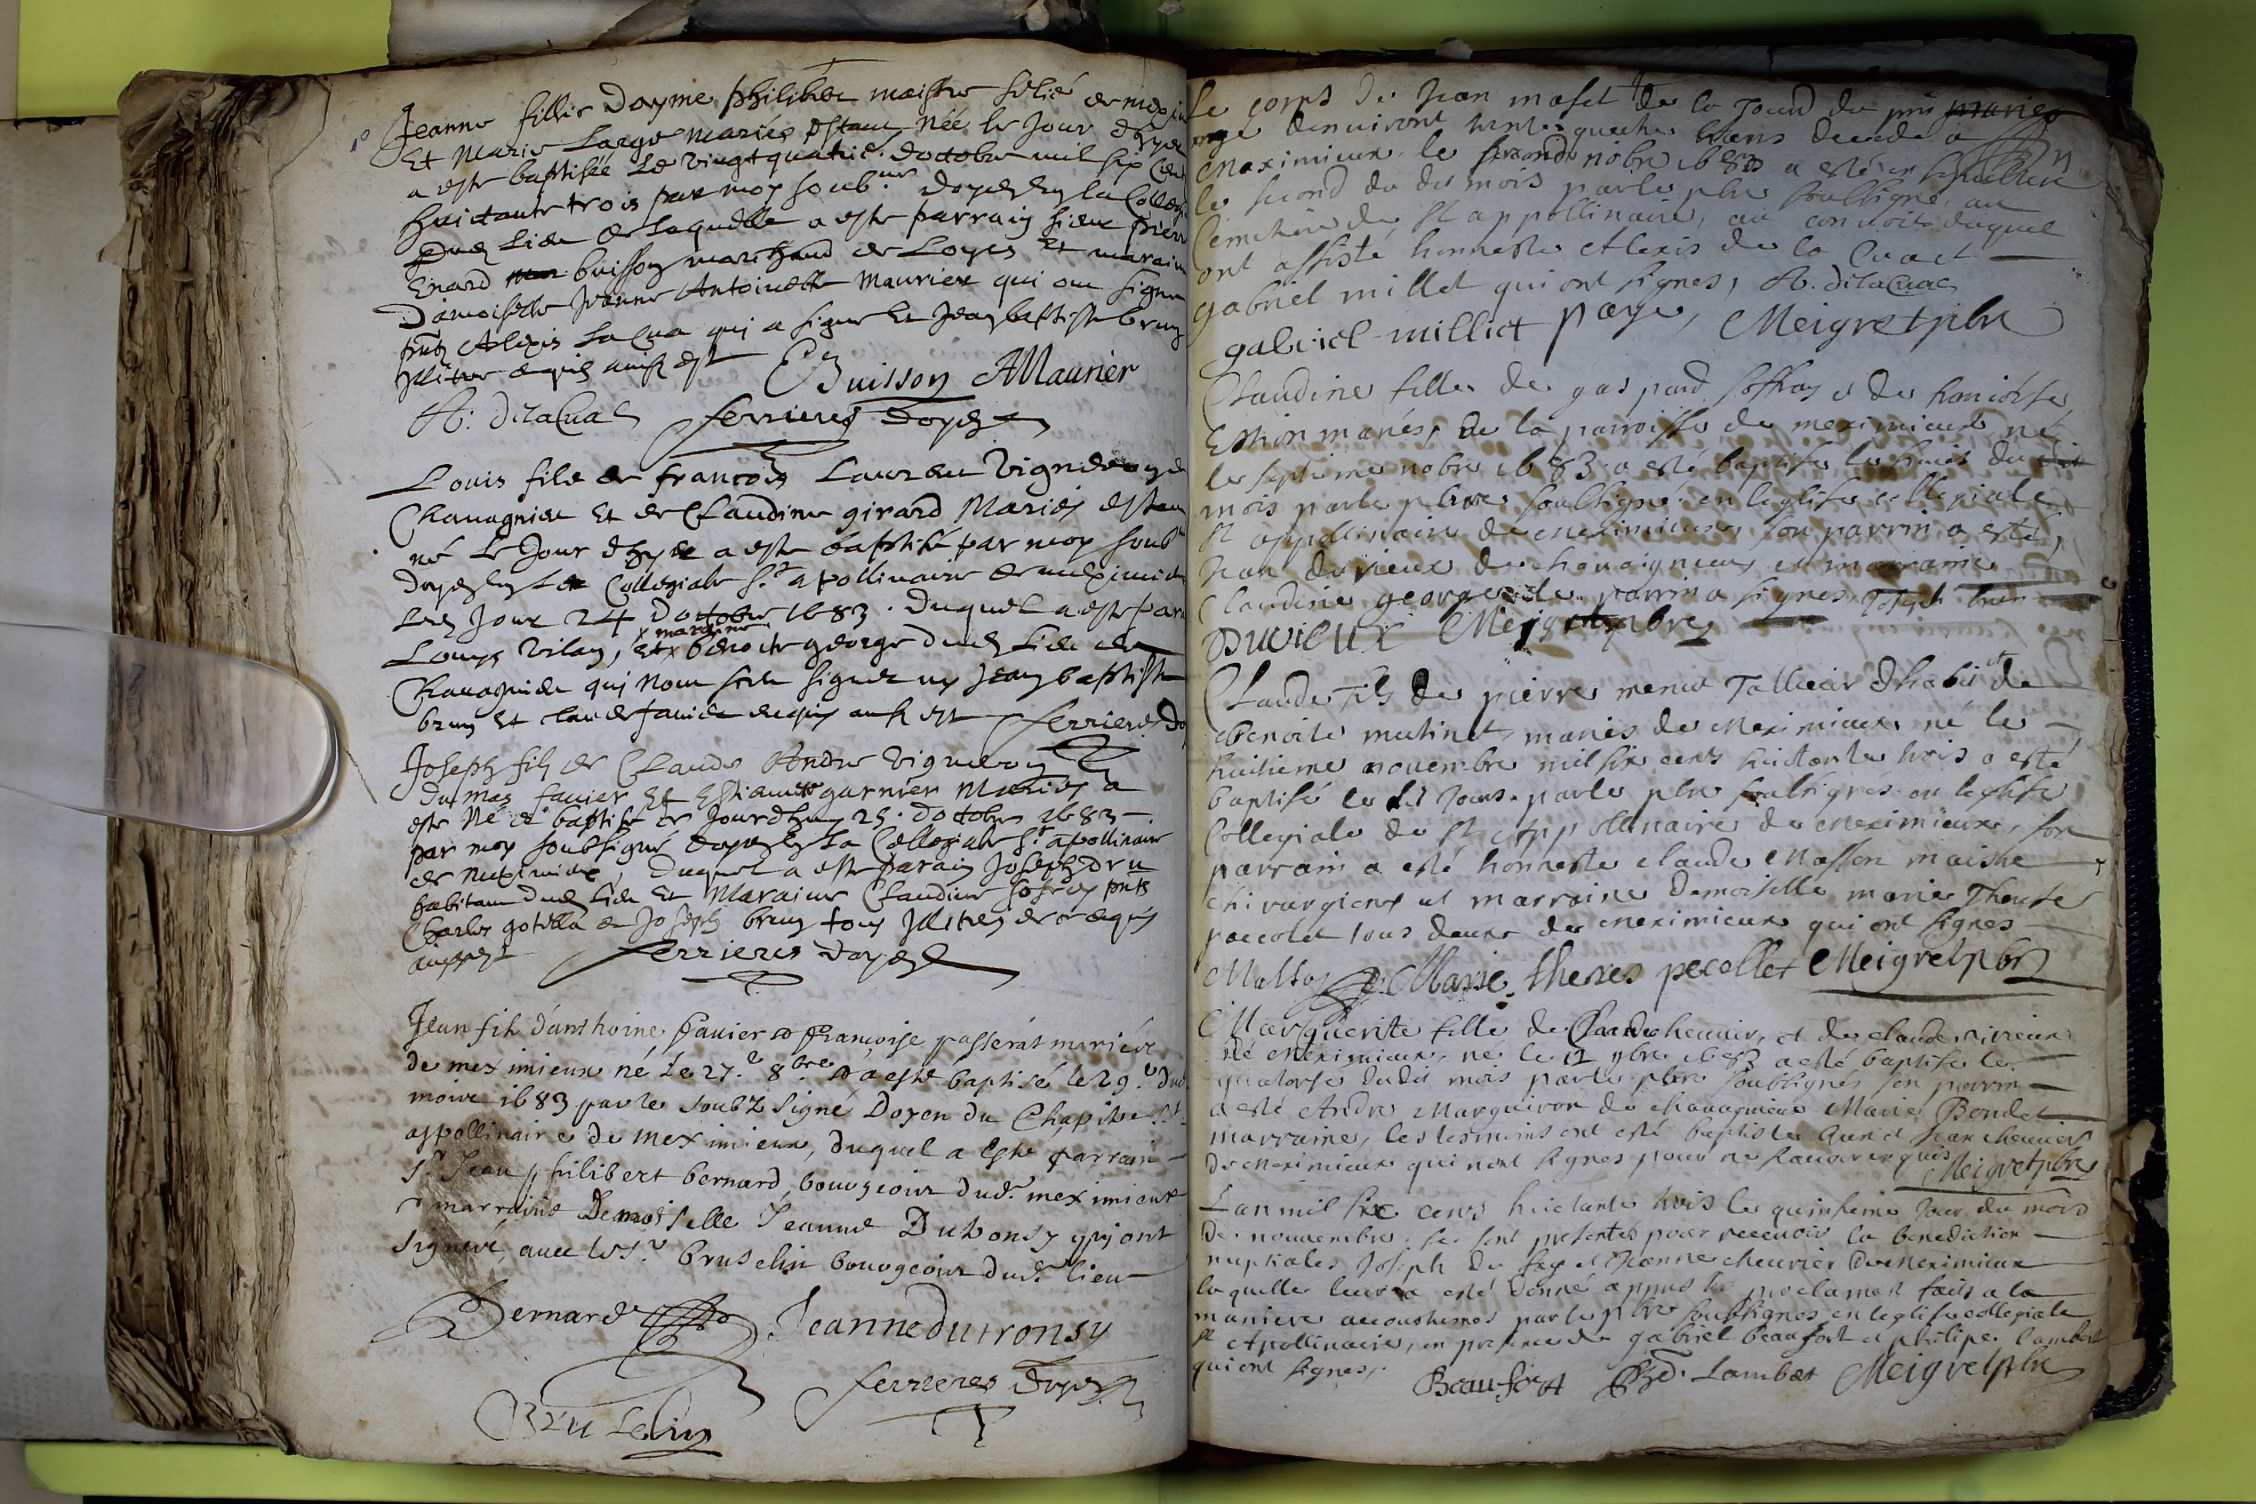 Jeanne fillie dayme philibbe maistre selié de mexim
Et Marie Large mariés estant Née le Jour d'hyer
a este baptisée Le vingt quatrie. doctobre mil six Cens
huictante trois par moy soub.né doyen en la Colleg.
dud. Lieu de laquelle a este parrain sieur pierre
Enard buisson marchand de Loyes Et maraine
Damoiselle Jeanne Antoinette Maurier qui ont signé
pnts Alexis LaCua qui a signé Et Jean baptiste brun
illitere enquis ainsi est
EBuisson AMaurier
A: diLaCua
ferrieres doyen
Louis fils de francois Laurau Vigneron de
Chavagnieu Et de Claudine girard Mariés estant
né Le Jour d'hyer a este baptisé par moy soub.
doyen en La Collegiale St apollinaire de meximieu
Led Jour 24 Doctobre 1683. duquel a este par
Louys vilan, Et x maraine benoite george dud. Lieu de
Chavagnieu qui nont sceu signer ny Jean baptiste
brun Et claude favier enquis ainsi est ferrieres do
Joseph fils de Claude Andre vigneron
du mas favier Et Estiennette garnier Mariés a
este Né et baptisé ce Jourdhuy 25. Doctobre 1683.
par moy soubsigné doyen en La Collegiale St apollinaire
de meximieu, duquel a este parain Joseph dru
habitant dud. Lieu Et Maraine Claudine sofrey pnts
Charles gotilla et Joseph brun tous illitres de ce enquis
ainsy est ferrieres doyen
Jean fils d'anthoine favier & françoise passerat mariés
de meximieux né Le 27.e 8bre a esté baptisé le 29.e dud.
mois 1683 par le soubzsigné Doyen du Chapitre St.
appollinaire de meximieux, duquel a esté parrain
Sr Jean philibert bernard, bourgeois dud.t meximieux
& marraine Demoiselle Jeanne Dutronsy qui ont
signéz, avec le Sr. bruselin bourgeois dud.t lieu
Bernard Jeanne dutronsy
ferrieres doyen
Bruselin
Le corps de Jean maset de la
age denviront trente quatre ans decede a
Meximieux le second nobre 1683 a esté
le second du dit mois par le pbre soubsigné, au
Cemetiere de St appollinaire, au convoit duquel
ont assisté honneste Alexis de la Cuat
gabriel millet qui ont signes, A. diLaCua
gabriel millict Meigret pbre
Claudine fille de gaspard soffray & de francoise
Esthion mariés, de la parroisse de meximieux né
le septieme nobre 1683 a esté baptisé le huit du dit
mois par le pbre soubsigné en leglise collegiale
St appollinaire de meximieux, son parrin a esté
Jean duvieux de chavaignieux et marraine
Claudine george le parrin a signes
DUVIEUX Meigret pbre
Claude fils de pierre menut Tallieur dhabit & de
benoite mutinet mariés de Meximieux né le
huitieme novembre mil six cents huictante trois a esté
baptisé le dit Jour par le pbre soubsignés en leglise
Collegiale de St Appollinaire de meximieux, son
parrain a esté honneste claude Masson maistre
chirurgiens et marraine Demoiselle marie Therese
pacolet tous deux de meximieux qui ont signes
Masson Marie theres pecollet Meigret pbre
Marguerite fille de et de claude
de meximieux, né le 12 9bre 1683 a esté baptisé le
quatorse dudit mois par le pbre soubsignés son parrin
a esté Andre Marguiron de chavagnieux Marie Bondet
marraine, les tesmoins ont esté baptiste et Jean chevrier
de meximieux qui nont signes pour ne scavoir enquis Meigret pbre
Lan mil six cens huictante trois le quinsieme Jour du mois
de novembre se sont presentes pour recevoir la benediction
nuptiale Joseph du fay et Jeanne chevrier de meximieux
laquelle leur a esté donné appres les proclamat faits a la
maniere accoustumés par le pbre soubsignes en leglise collegiale
St Apollinaire, en presence de gabriel beaufort et philipe Lambert
qui ont signes,
Beaufort Lambert Meigret pbre